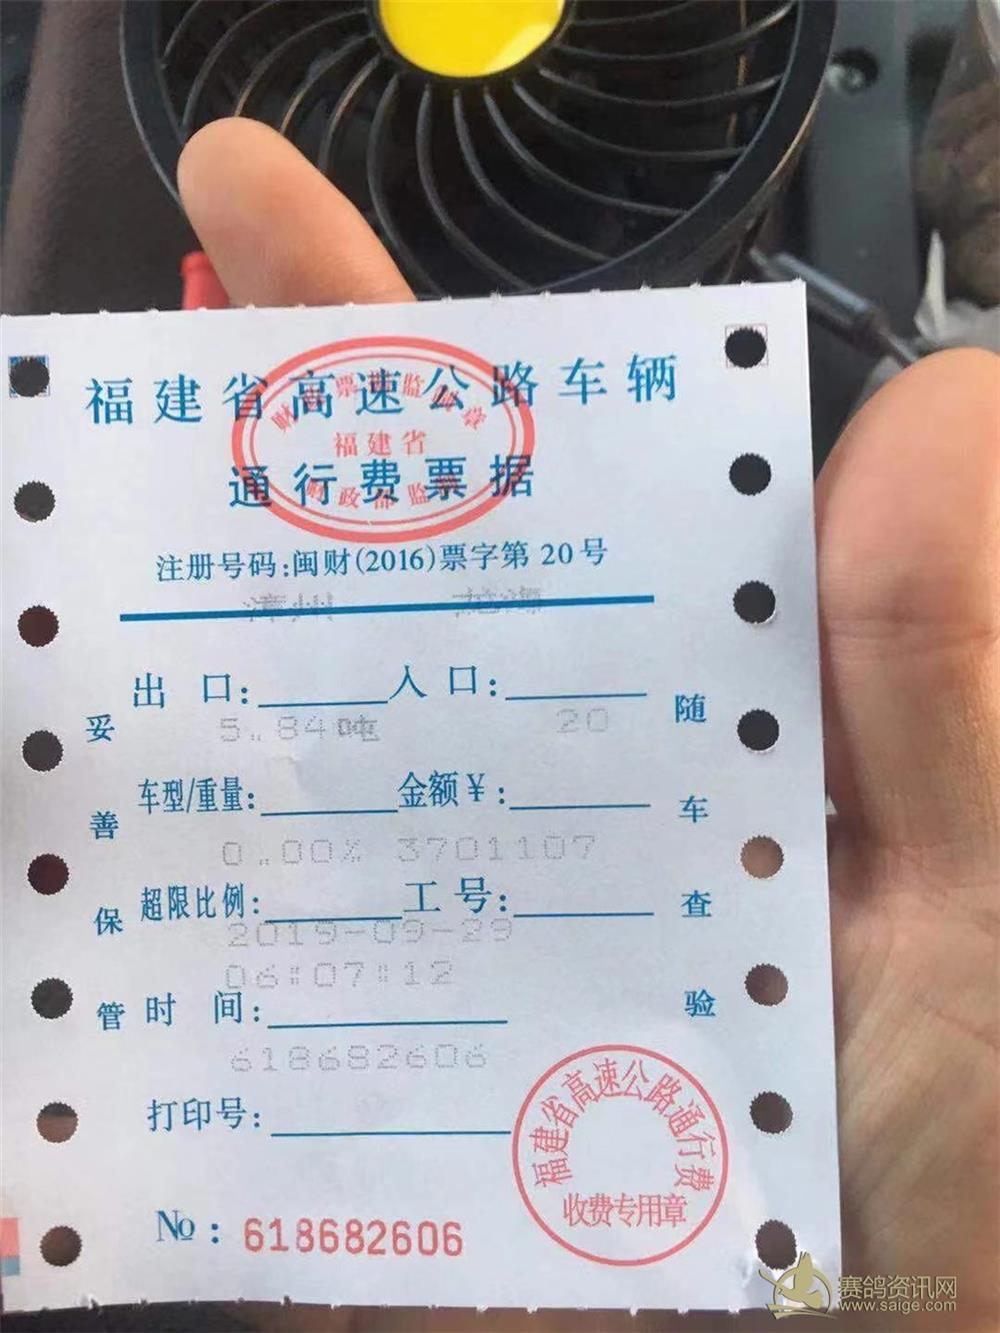 福建省高速公路车辆
通行费票据
福建省
注册号码:闽财(2016)票字第 20号
漳州
出 口: 入 口:
5.84吨 20
车型/重量: 金额¥:
0.00% 3701107
超限比例: 工 号:
2019-09-29
06:07:12
时 间:
618682606
打印号:
№: 618682606
妥善保管
随车查验
福建省高速公路通行费
收费专用章
赛鸽资讯网
www.saige.com